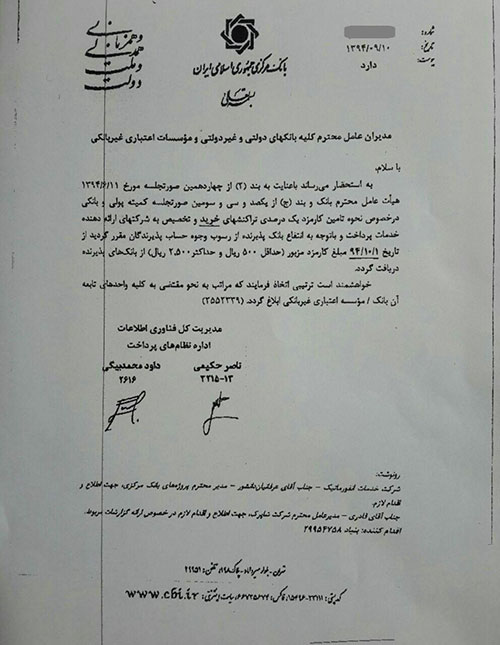 دولت و ملت همدلی و همزبانی
بانک مرکزی جمهوری اسلامی ایران
بسمه تعالی
شماره:
تاریخ: ۱۳۹۴/۰۹/۱۰
پیوست: دارد
مدیران عامل محترم کلیه بانکهای دولتی و غیردولتی و مؤسسات اعتباری غیربانکی
با سلام،
به استحضار می‌رساند باعنایت به بند (۲) از چهاردهمین صورتجلسه مورخ ۱۳۹۴/۶/۱۱
هیأت عامل محترم بانک و بند (ج) از یکصد و سی و سومین صورتجلسه کمیته پولی و بانکی
درخصوص نحوه تامین کارمزد یک درصدی تراکنشهای خرید و تخصیص به شرکتهای ارائه دهنده
خدمات پرداخت و باتوجه به انتفاع بانک پذیرنده از رسوب وجوه حساب پذیرندگان مقرر گردید از
تاریخ ۹۴/۱۰/۱ مبلغ کارمزد مزبور (حداقل ۵۰۰ ریال و حداکثر ۲,۵۰۰ ریال) از بانک‌های پذیرنده
دریافت گردد.
خواهشمند است ترتیبی اتخاذ فرمایند که مراتب به نحو مقتضی به کلیه واحدهای تابعه
آن بانک / مؤسسه اعتباری غیربانکی ابلاغ گردد. (۲۵۵۲۳۳۹)
مدیریت کل فناوری اطلاعات
اداره نظام‌های پرداخت
ناصر حکیمی داود محمدبیگی
۳۲۱۵-۱۳ ۲۶۱۶
رونوشت:
شرکت خدمات انفورماتیک – جناب آقای عرفانیان‌دانشور – مدیر محترم پروژه‌های بانک مرکزی، جهت اطلاع و
اقدام لازم.
جناب آقای قادری – مدیرعامل محترم شرکت شاپرک، جهت اطلاع و اقدام لازم در خصوص ارائه گزارشات مربوط.
اقدام کننده: بنیاد ۲۹۹۵۴۷۵۸
تهران - بلوار میرداماد - پلاک ۱۹۸ تلفن: ۲۹۹۵۱
کدپستی: ۲۳۱۱۱-۱۵۴۹۶ فاکس: ۶۶۷۳۵۶۷۴ سایت اینترنتی: www.cbi.ir